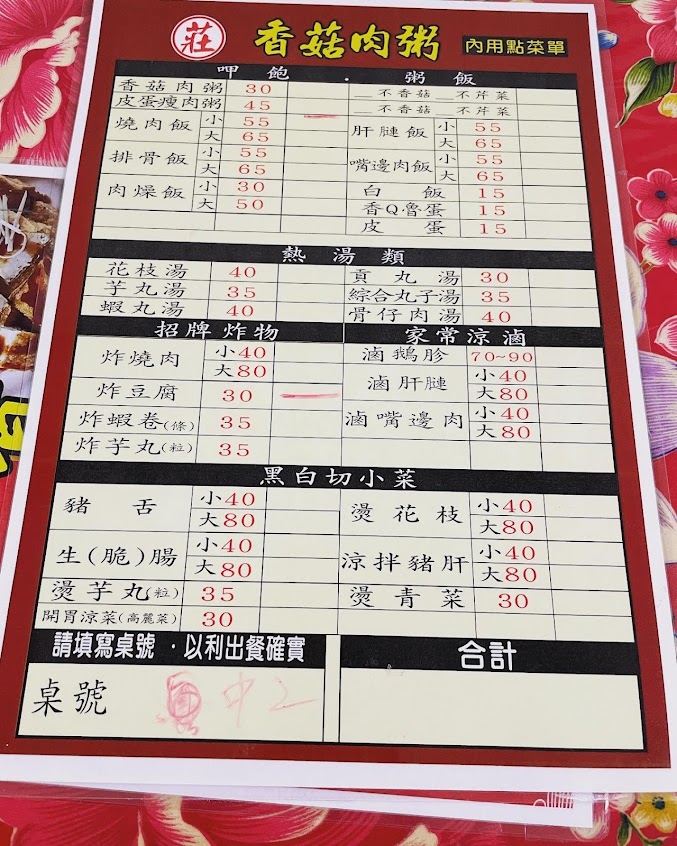 莊 香菇肉粥 內用點菜單
呷飽．粥飯
香菇肉粥 30 __不香菇 __不芹菜
皮蛋瘦肉粥 45 __不香菇 __不芹菜
燒肉飯 小 55
大 65
排骨飯 小 55
大 65
肉燥飯 小 30
大 50
肝膶飯 小 55
大 65
嘴邊肉飯 小 55
大 65
白飯 15
香Q魯蛋 15
皮蛋 15
熱湯類
花枝湯 40
芋丸湯 35
蝦丸湯 40
貢丸湯 30
綜合丸子湯 35
骨仔肉湯 40
招牌炸物
炸燒肉 小40
大80
炸豆腐 30
炸蝦卷(條) 35
炸芋丸(粒) 35
家常涼滷
滷鵝胗 70~90
滷肝膶 小40
大80
滷嘴邊肉 小40
大80
黑白切小菜
豬舌 小40
大80
生(脆)腸 小40
大80
燙芋丸(粒) 35
開胃涼菜(高麗菜) 30
燙花枝 小40
大80
涼拌豬肝 小40
大80
燙青菜 30
請填寫桌號．以利出餐確實
桌號
合計